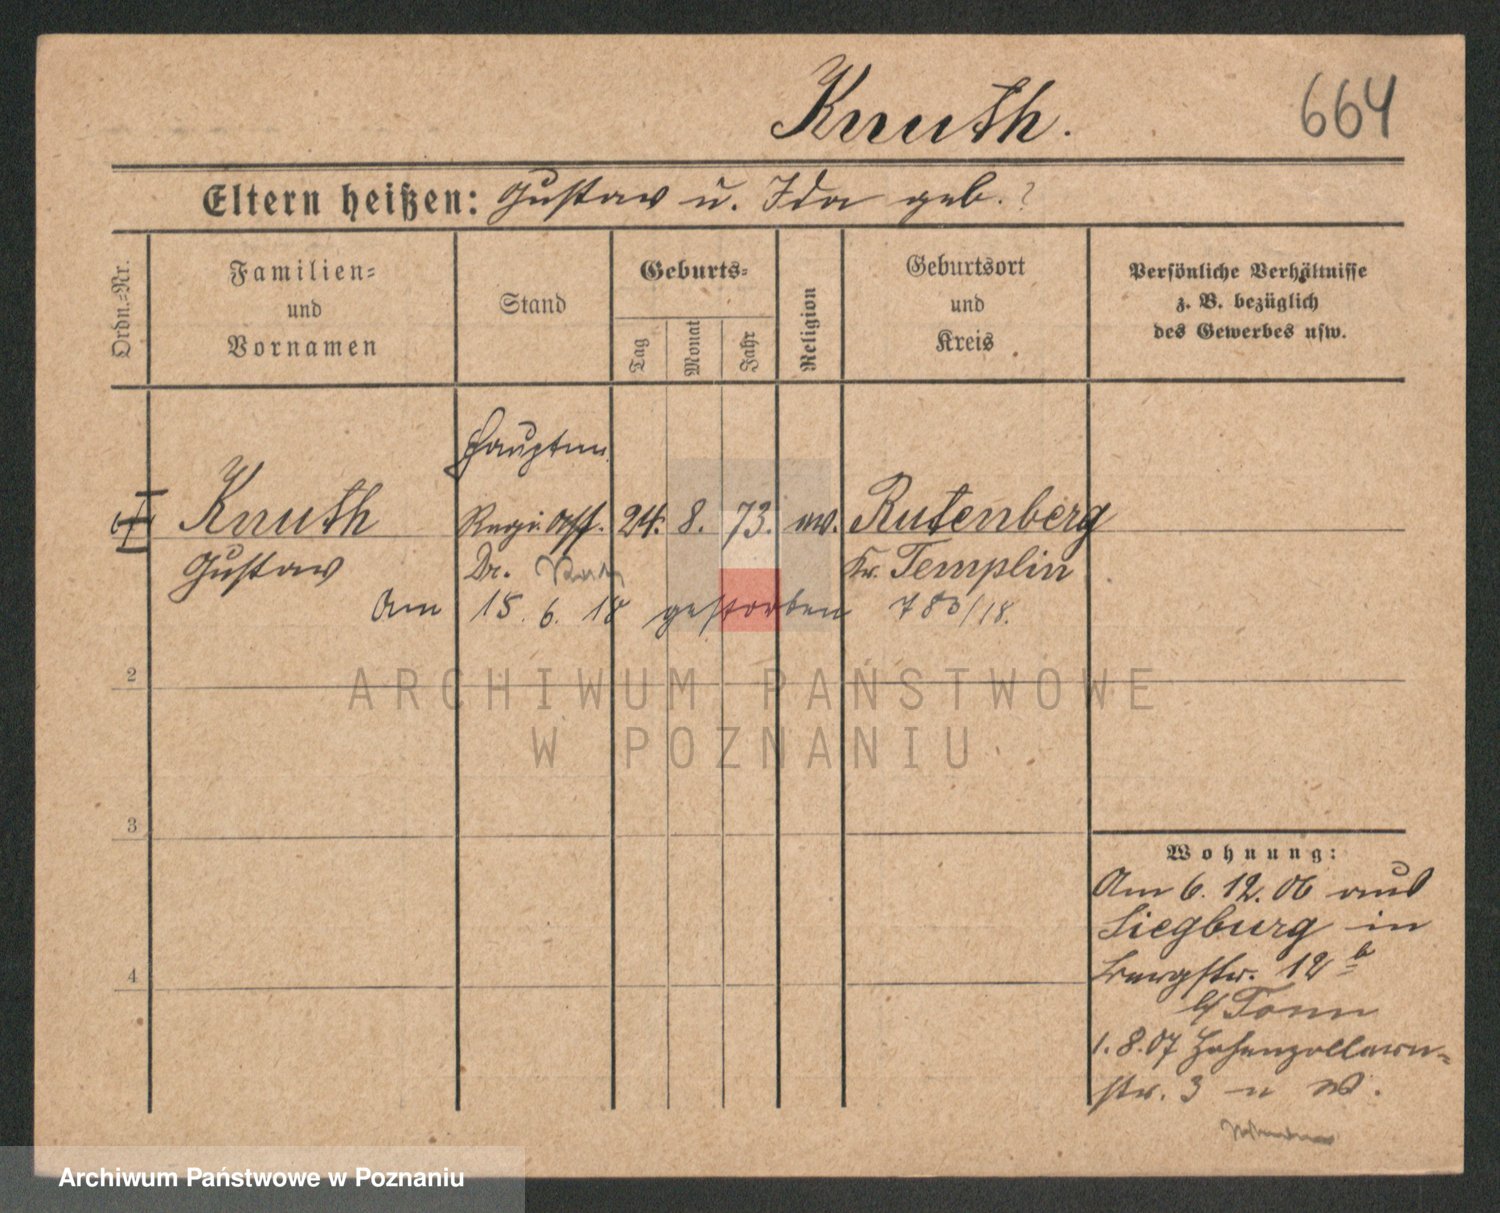 Knuth.
664
Eltern heißen: Gustav u. Ida geb. ?
Ordn.-Nr.
Familien-
und
Vornamen
Stand
Geburts-
Tag
Monat
Jahr
Religion
Geburtsort
und
Kreis
Persönliche Verhältnisse
z. B. bezüglich
des Gewerbes usw.
Hauptm.
Knuth
Regi. Ass. 24. 8. 73. ev. Rutenberg
Gustav
Dr.
Kr. Templin
Am 15. 6. 18 gestorben 783/18.
2
ARCHIWUM PAŃSTWOWE
W POZNANIU
3
Wohnung:
Am 6. 12. 06 aus
Siegburg in
12 b
b/ Tonn
1. 8. 07 Hohenzollern-
str. 3 n W.
4
Archiwum Państwowe w Poznaniu